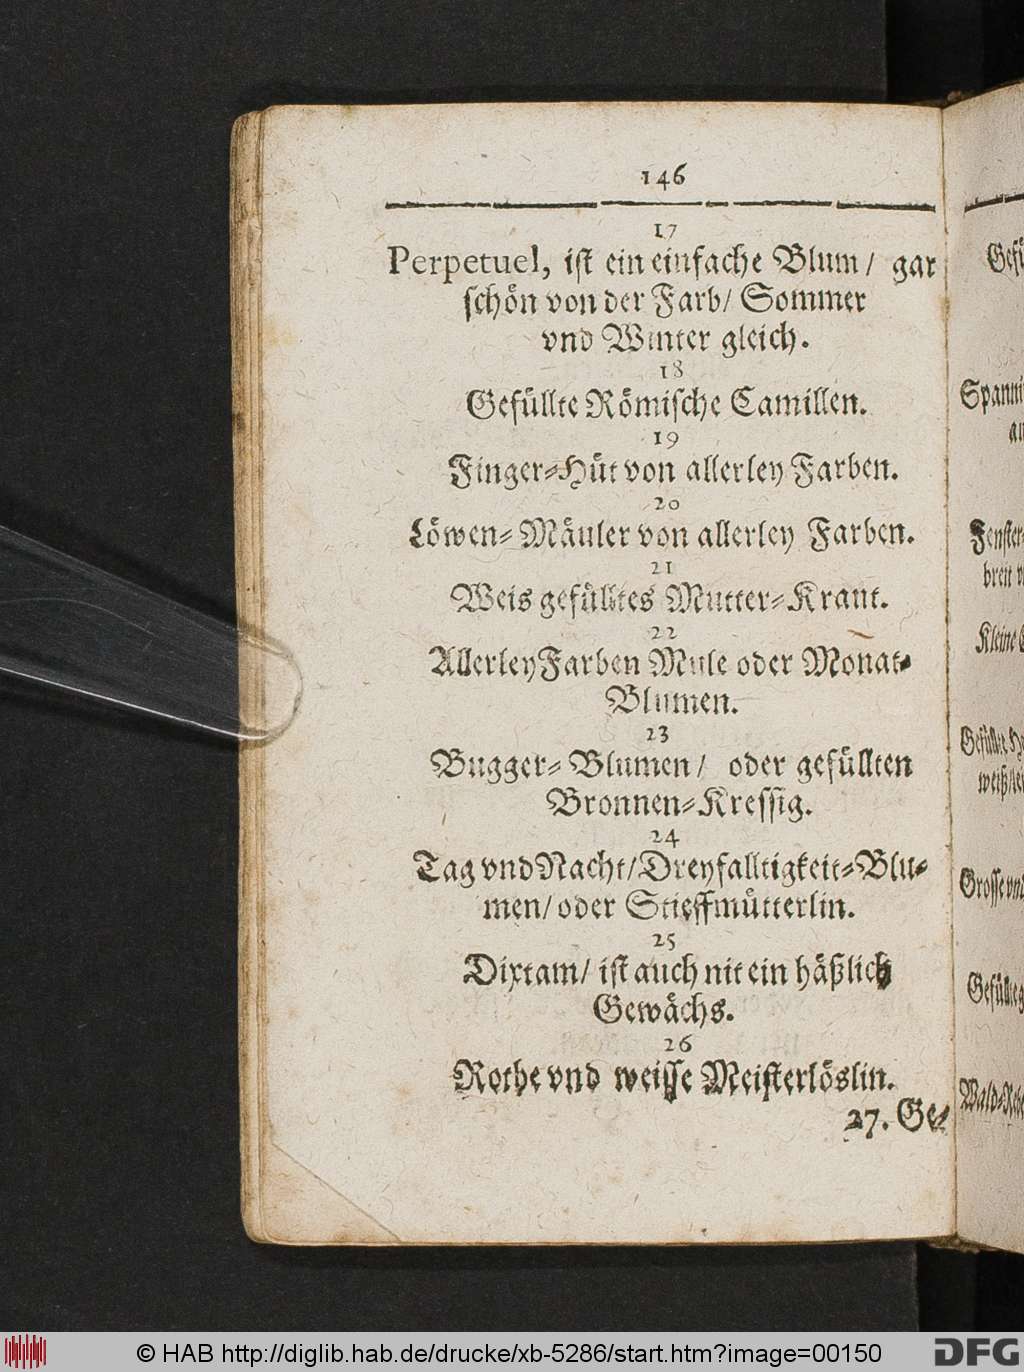 146
17
Perpetuel, ist ein einfache Blum / gar
schön von der Farb / Sommer
vnd Winter gleich.
18
Gefüllte Römische Camillen.
19
Finger-Hüt von allerley Farben.
20
Löwen-Mäuler von allerley Farben.
21
Weis gefülltes Mutter-Kraut.
22
Allerley Farben Mule oder Monat-
Blumen.
23
Bugger-Blumen / oder gefüllten
Bronnen-Kressig.
24
Tag vnd Nacht / Dreyfalltigkeit-Blu-
men / oder Stieffmütterlin.
25
Dixtam / ist auch nit ein häßlich
Gewächs.
26
Rothe vnd weisse Meisterlöslin.
27. Ge-
Gefü
Spanni
Fenster-
breit
Kleine
Grosse vnd
© HAB http://diglib.hab.de/drucke/xb-5286/start.htm?image=00150
DFG